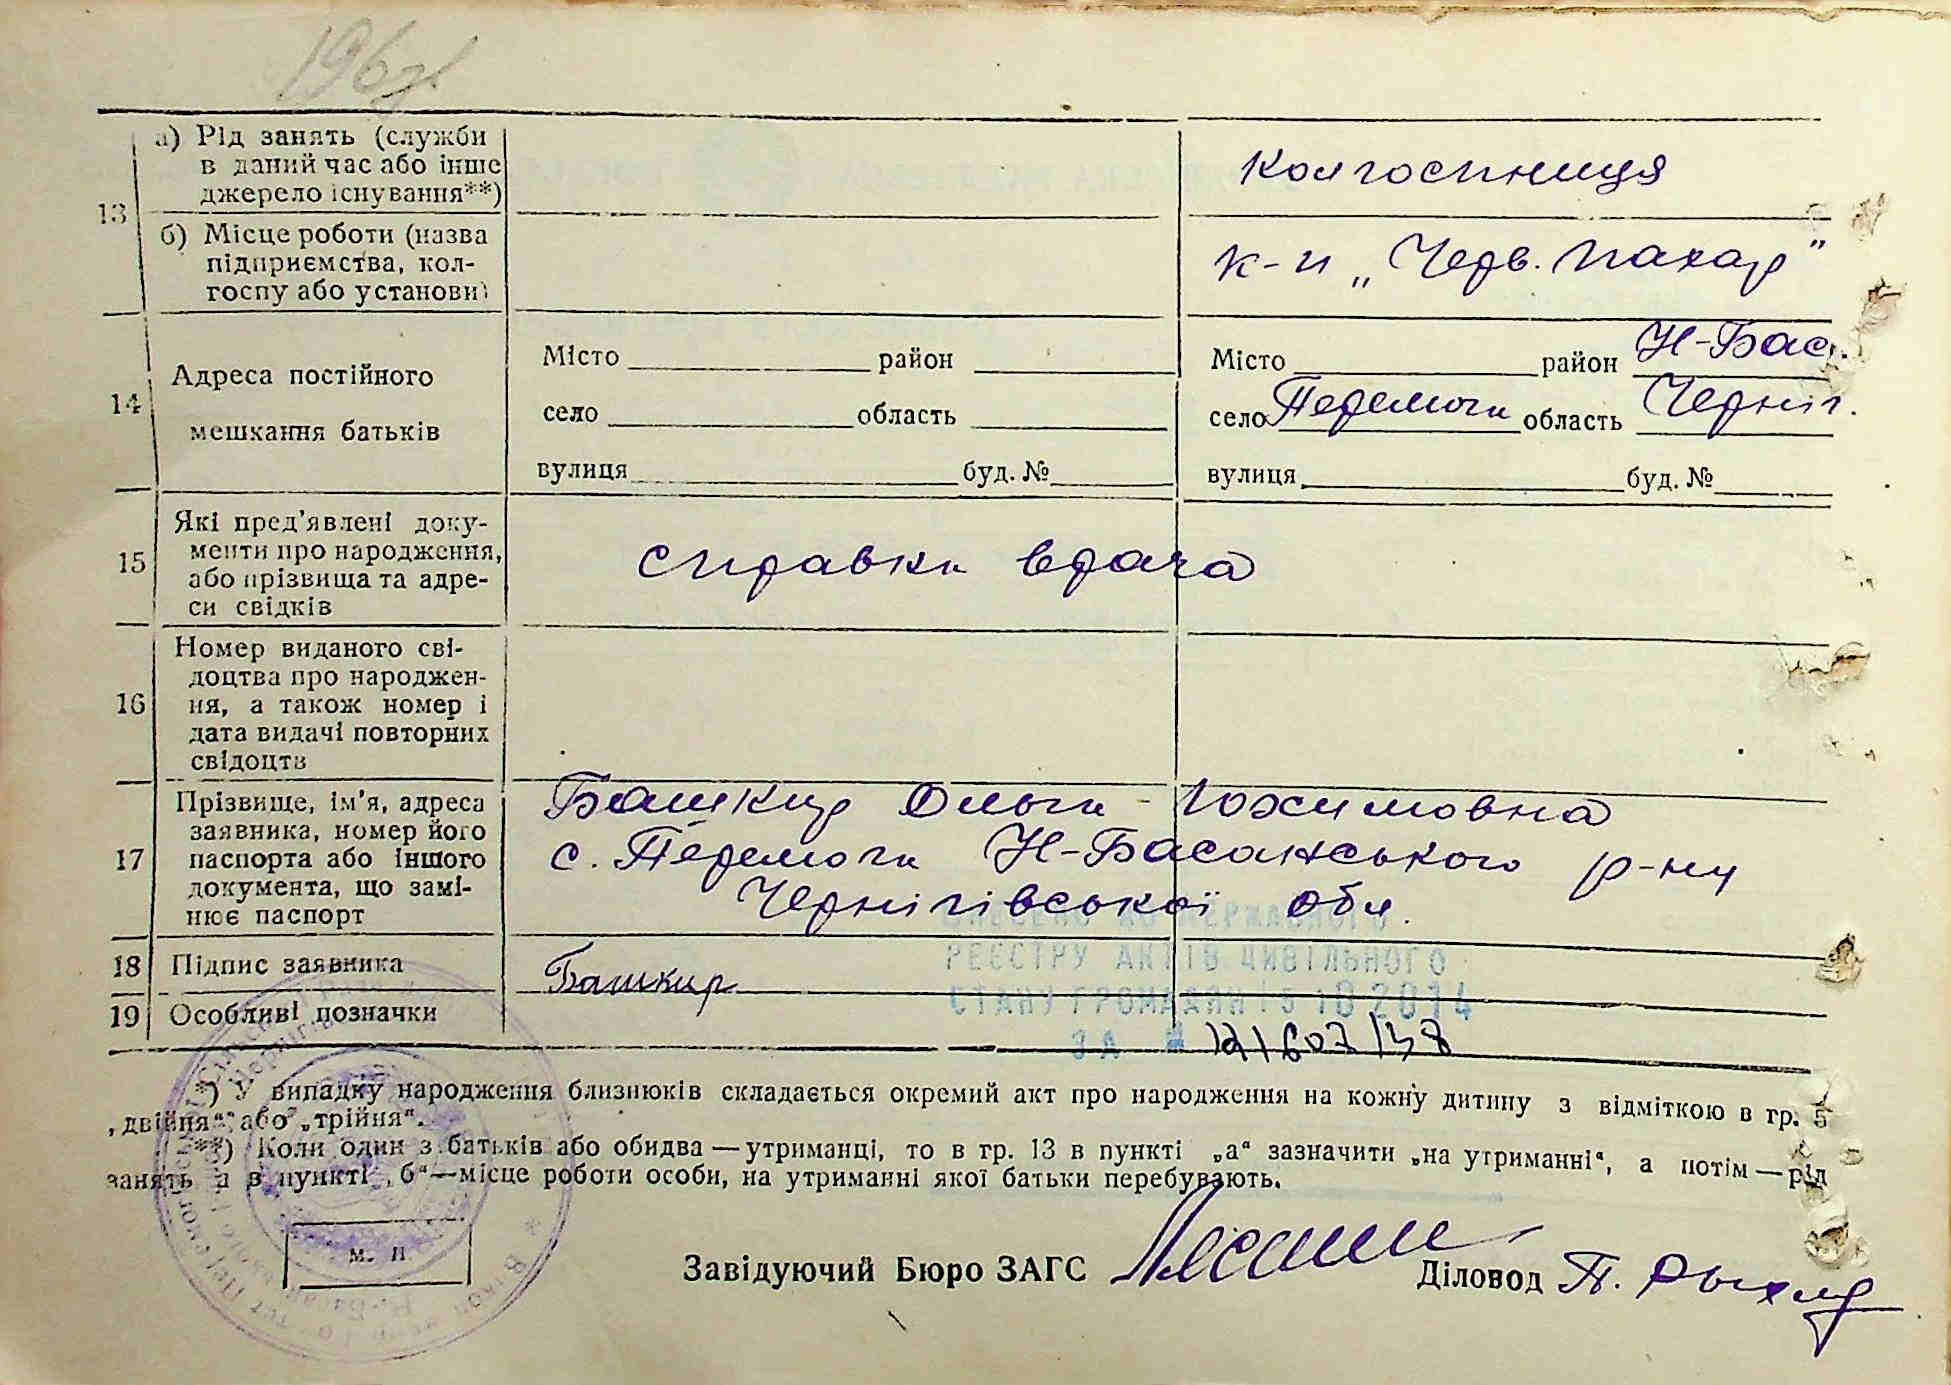 а) Рід занять (служби
в даний час або інше
джерело існування**)
колгоспниця
13
б) Місце роботи (назва
підприємства, кол-
госпу або установи)
к-п „Черв. Пахар"
14
Адреса постійного
мешкання батьків
Місто район
село область
вулиця буд. №
Місто район Н-Бас.
село Перемога область Черніг.
вулиця буд. №
15
Які пред'явлені доку-
менти про народження,
або прізвища та адре-
си свідків
справка врача
16
Номер виданого сві-
доцтва про народжен-
ня, а також номер і
дата видачі повторних
свідоцтв
17
Прізвище, ім'я, адреса
заявника, номер його
паспорта або іншого
документа, що замі-
нює паспорт
Башкир Ольга Юхимовна
с. Перемога Н-Басанського р-ну
Чернігівської обл.
18 Підпис заявника
Башкир
19 Особливі позначки
ВНЕСЕНО ДО ДЕРЖАВНОГО
РЕЄСТРУ АКТІВ ЦИВІЛЬНОГО
СТАНУ ГРОМАДЯН 15 10 2014
ЗА №
*) У випадку народження близнюків складається окремий акт про народження на кожну дитину з відміткою в гр. 5
„двійня" або „трійня".
**) Коли один з батьків або обидва — утриманці, то в гр. 13 в пункті „а" зазначити „на утриманні", а потім — рід
занять, а в пункті „б" — місце роботи особи, на утриманні якої батьки перебувають.
м. п
Завідуючий Бюро ЗАГС
Діловод П.